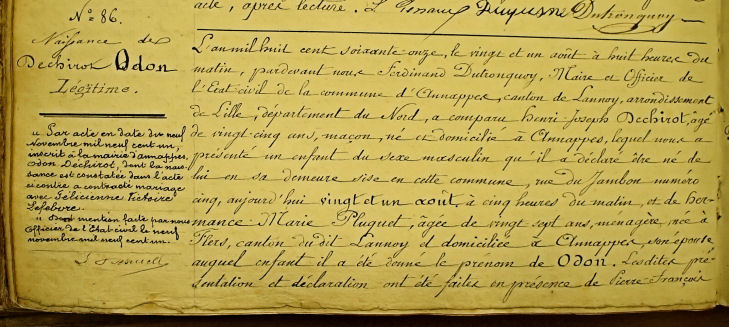 acte, après lecture.
Duquesne Dutronquoy
N° 86.
Naissance de
Dechirot Odon
Légitime.
" Par acte en date du neuf
Novembre mil neuf cent un,
inscrit à la mairie d'annappes,
Odon Dechirot, dont la nais
sance est constatée dans l'acte
ci-contre a contracté mariage
avec Félicienne Victoire
Lefebvre
" Dont mention faite par nous
Officier de l'Etat civil le neuf
novembre mil neuf cent un.
L'an mil huit cent soixante onze, le vingt et un août à huit heures du
matin, pardevant nous Ferdinand Dutronquoy, Maire et Officier de
l'Etat civil de la commune d'Annappes, canton de Lannoy, arrondissement
de Lille, département du Nord, a comparu Henri Joseph Dechirot, âgé
de vingt cinq ans, maçon, né et domicilié à Annappes, lequel nous a
présenté un enfant du sexe masculin qu'il a déclaré être né de
lui en sa demeure sise en cette commune, rue du Jambon numéro
cinq, aujourd'hui vingt et un août, à cinq heures du matin, et de Her-
mance Marie Pluquet, âgée de vingt sept ans, ménagère, née à
Flers, canton dudit Lannoy et domiciliée à Annappes, son épouse
auquel enfant il a été donné le prénom de Odon. Lesdites pré-
sentation et déclaration ont été faites en présence de Pierre François